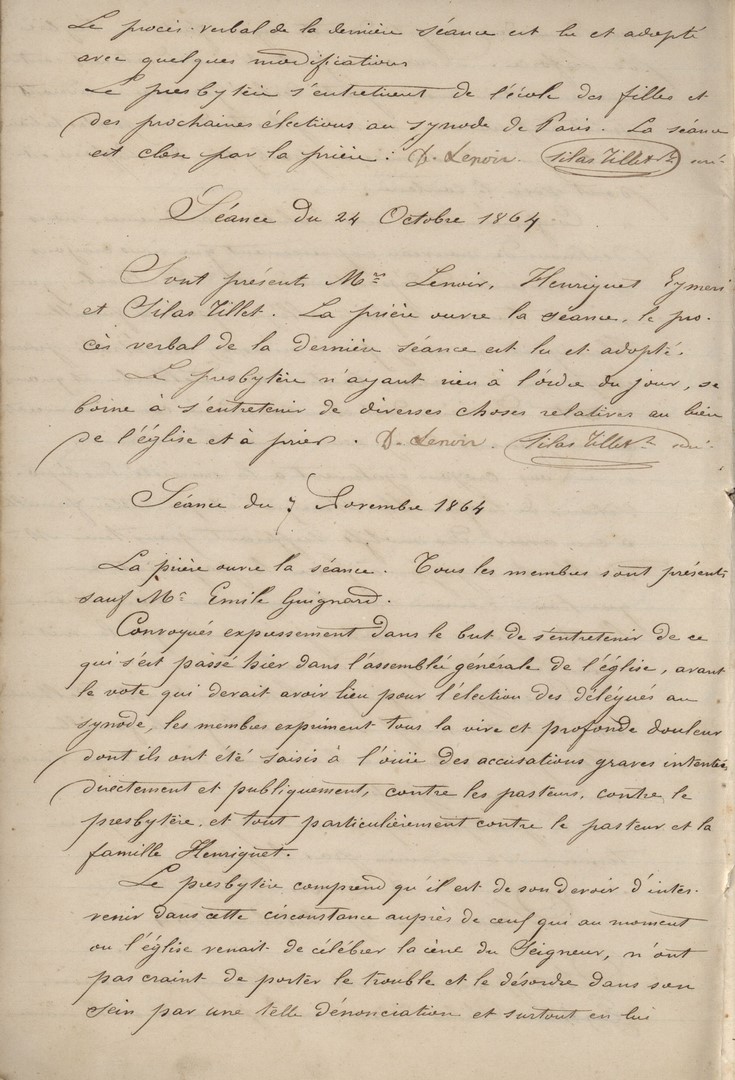 Le procès-verbal de la dernière séance est lu et adopté
avec quelques modifications
Le presbytère s'entretient de l'école des filles et
des prochaines élections au synode de Paris. La séance
est close par la prière. D. Lenoir. Silas Tillet
Séance du 24 Octobre 1864.
Sont présents Mrs Lenoir, Henriquet Eymeri
et Silas Tillet. La prière ouvre la séance, le pro-
cès verbal de la dernière séance est lu et adopté.
Le presbytère n'ayant rien à l'ordre du jour, se
borne à s'entretenir de diverses choses relatives au bien
de l'église et à prier. D. Lenoir. Silas Tillet
Séance du 7 Novembre 1864
La prière ouvre la séance. Tous les membres sont présents
sauf Mr Emile Guignard.
Convoqués expressement dans le but de s'entretenir de ce
qui s'est passé hier dans l'assemblée générale de l'église, avant
le vote qui devait avoir lieu pour l'élection des délégués au
synode, les membres expriment tous la vive et profonde douleur
dont ils ont été saisis à l'ouïe des accusations graves intentées
directement et publiquement, contre les pasteurs, contre le
presbytère, et tout particulièrement contre le pasteur et la
famille Henriquet.
Le presbytère comprend qu'il est de son devoir d'inter-
venir dans cette circonstance auprès de ceux qui au moment
ou l'église venait de célébrer la cène du Seigneur, n'ont
pas craint de porter le trouble et le désordre dans son
sein par une telle dénonciation et surtout en lui